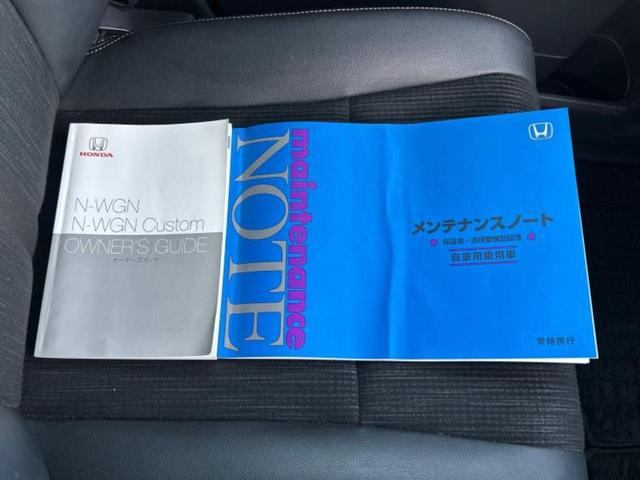 HONDA
N-WGN
N-WGN Custom
OWNER'S GUIDE
オーナーズガイド
maintenance
NOTE
メンテナンスノート
保証書・点検整備記録簿
自家用乗用車
常時携行